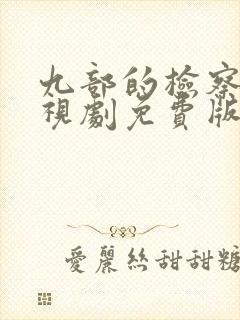 九部的檢察
視劇免費版
愛麗絲甜甜糖